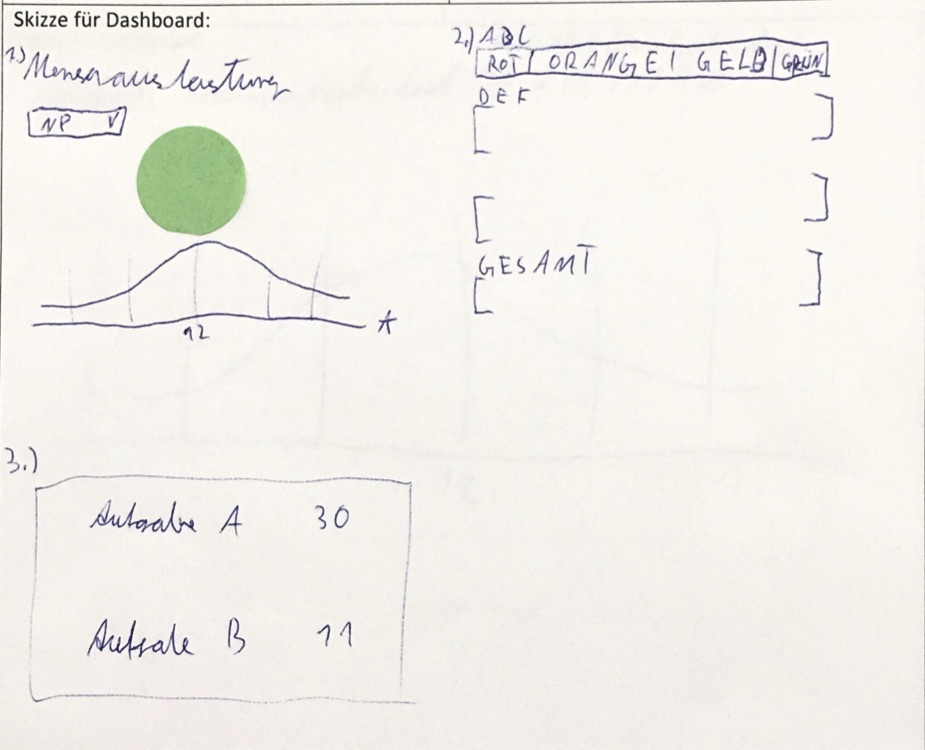 Skizze für Dashboard:
1.) Mensaauslastung
NP V
12
A
2.) ABC
ROT | ORANGE | GELB | GRÜN
DEF
GESAMT
3.)
Aufgabe A 30
Aufgabe B 11